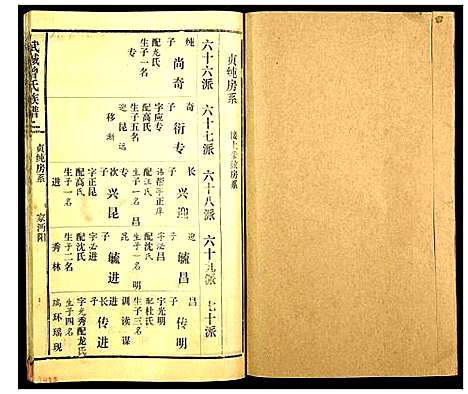 贞纯房系
六十六派
六十七派
六十八派
六十九派
七十派
纯子 尚奇
配尧氏
生子一名
专
奇子 衍专
字应专
配高氏
生子五名
迎 昆 远
移 渐
长子 兴迎
配江氏
生子一名
昌
次子 兴昆
字正昆
配高氏
生子一名
进
迎子 毓昌
字必昌
配沈氏
生子一名
明
昆子 毓进
字必进
配沈氏
生子二名
秀 林
昌子 传明
字光明
配杜氏
生子三名
训 读 谋
进长子 传进
字光秀配龙氏
生子四名
瑞 环 瑶 现
武城曾氏族谱
贞纯房系
家沔阳